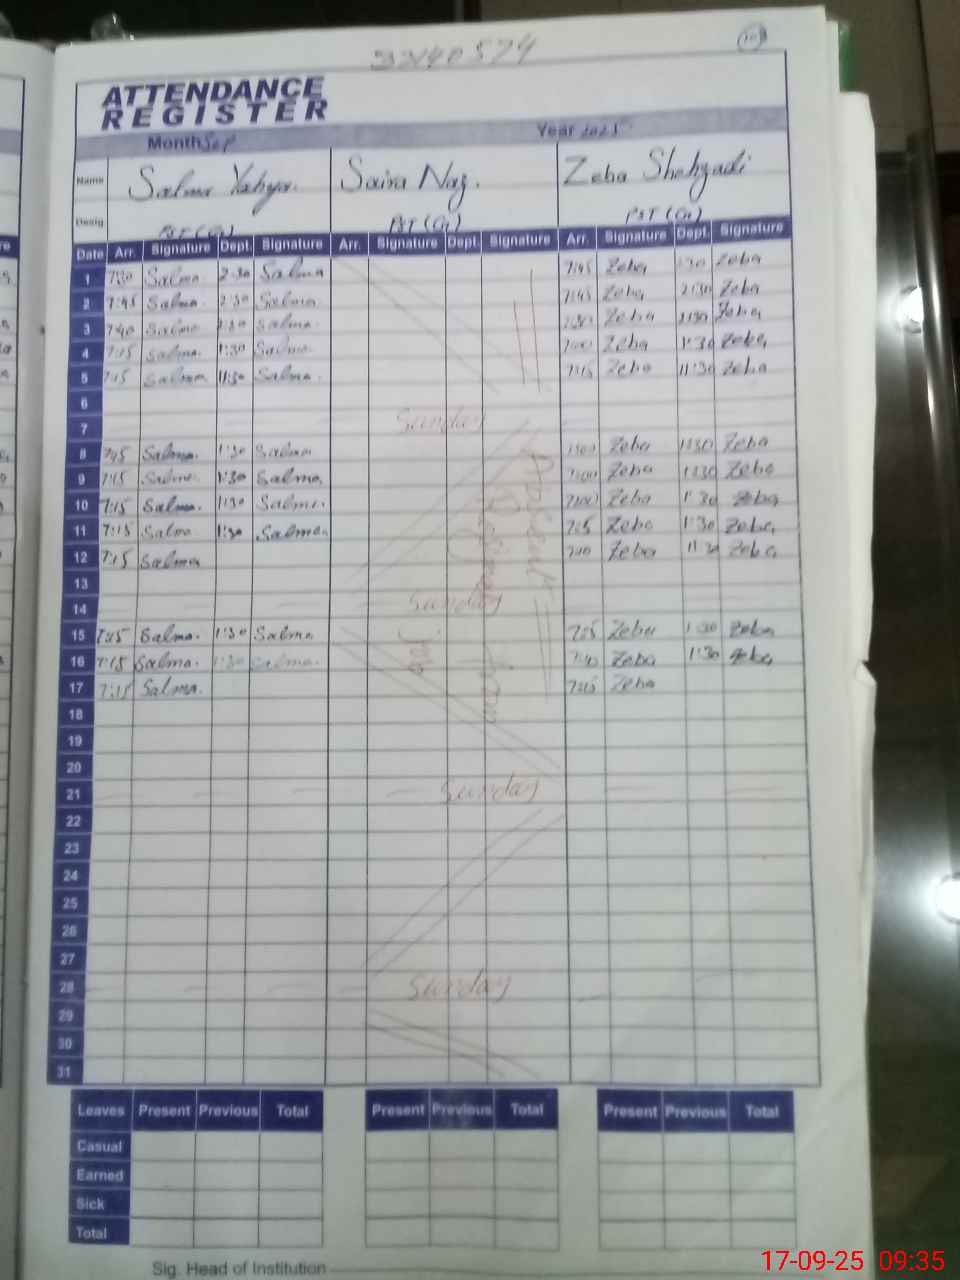 3340574
ATTENDANCE
REGISTER
Month Sep Year 2025
Name Salma Yahya. Saira Naz. Zeba Shehzadi
Desig PST (G) PST (G) PST (G)
Date Arr. Signature Dept. Signature Arr. Signature Dept. Signature Arr. Signature Dept. Signature
1 7:30 Salma 2:30 Salma 7:45 Zeba 1:30 Zeba
2 7:45 Salma 2:30 Salma 7:45 Zeba 2:30 Zeba
3 7:40 Salma Salma Zeba 1:30 Zeba
4 7:15 Salma 1:30 Salma 7:00 Zeba 1:30 Zeba
5 7:15 Salma 11:30 Salma 7:15 Zeba 11:30 Zeba
6
7 Sunday
8 7:45 Salma 1:30 Salma Zeba 1:30 Zeba
9 7:45 Salma 1:30 Salma 7:00 Zeba 1:30 Zeba
10 7:15 Salma 1:30 Salma 7:00 Zeba 1:30 Zeba
11 7:15 Salma 1:30 Salma 7:15 Zeba 1:30 Zeba
12 7:15 Salma 7:10 Zeba 11:30 Zeba
13
14 Sunday
15 7:15 Salma. 1:30 Salma 7:15 Zeba 1:30 Zeba
16 7:15 Salma. 1:30 Salma. 7:10 Zeba 1:30 Zeba
17 7:15 Salma. 7:15 Zeba
18
19
20
21 Sunday
22
23
24
25
26
27
28 Sunday
29
30
31
Absent
from
Leaves Present Previous Total Present Previous Total Present Previous Total
Casual
Earned
Sick
Total
Sig. Head of Institution
17-09-25 09:35